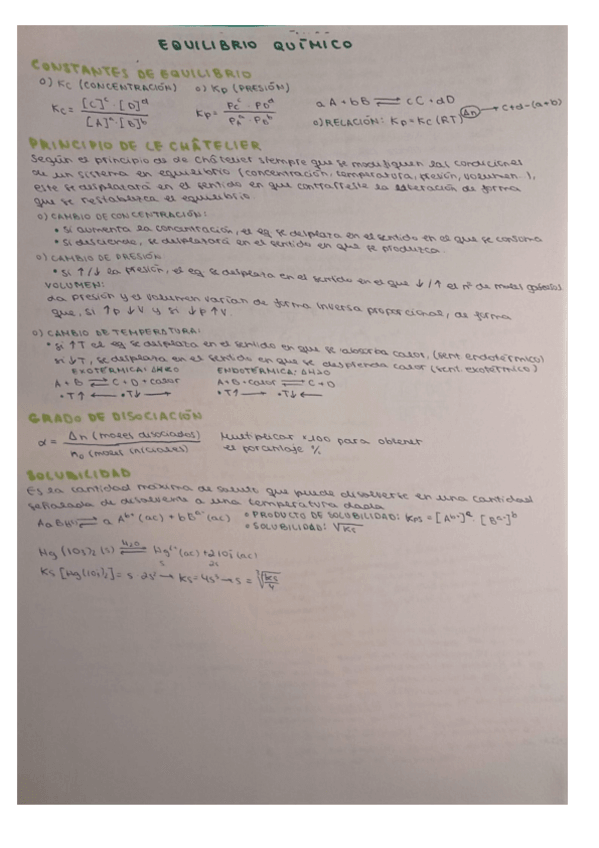 EQUILIBRIO QUÍMICO
CONSTANTES DE EQUILIBRIO
o) Kc (CONCENTRACIÓN) o) Kp (PRESIÓN)
Kc = [C]^c · [D]^d / [A]^a · [B]^b Kp = Pc^c · PD^d / PA^a · PB^b aA + bB ⇌ cC + dD
o) RELACIÓN: Kp = Kc (RT)^Δn → c+d-(a+b)
PRINCIPIO DE LE CHÂTELIER
Según el principio de de Châtelier siempre que se modifiquen las condiciones
de un sistema en equilibrio (concentración, temperatura, presión, volumen...),
este se desplazará en el sentido en que contrarreste la alteración de forma
que se restablezca el equilibrio.
o) CAMBIO DE CONCENTRACIÓN:
• Si aumenta la concentración, el eq se desplaza en el sentido en el que se consuma
• Si desciende, se desplazará en el sentido en que se produzca.
o) CAMBIO DE PRESIÓN:
• Si ↑/↓ la presión, el eq se desplaza en el sentido en el que ↓/↑ el nº de moles (gaseosos)
VOLUMEN:
La presión y el volumen varían de forma inversa proporcional, de forma
que, si ↑p ↓V y si ↓p ↑V.
o) CAMBIO DE TEMPERATURA:
• Si ↑T el eq se desplaza en el sentido en que se absorba calor, (sent endotérmico)
si ↓T, se desplaza en el sentido en que se desprenda calor (sent. exotérmico)
EXOTÉRMICA: ΔH<0 ENDOTÉRMICA: ΔH>0
A + B ⇌ C + D + calor A + B + calor ⇌ C + D
• T↑ ← • T↓ → • T↑ → • T↓ ←
GRADO DE DISOCIACIÓN
α = Δn (moles disociados) / n₀ (moles iniciales) Multiplicar ×100 para obtener
el %
SOLUBILIDAD
Es la cantidad máxima de soluto que puede disolverse en una cantidad
señalada de disolvente a una temperatura dada
⇌ a A^b+ (ac) + b B^a- (ac) • PRODUCTO DE SOLUBILIDAD: Kps = [A^b+]^a · [B^a-]^b
• SOLUBILIDAD: √Ks
Hg(IO3)2 (s) ⇌ H2O Hg²⁺ (ac) + 2IO3⁻ (ac)
s 2s
Ks [Hg(IO3)2] = s · 2s² → Ks = 4s³ → s = ³√Ks/4